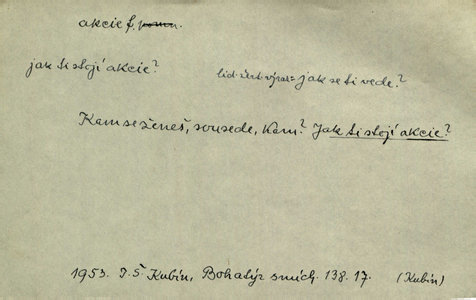 akcie f.
jak ti stojí akcie? lid. žert. výraz = jak se ti vede?
Kam se ženeš, sousede, kam? Jak ti stojí akcie?
1953. J. Š. Kubín, Bohatýr smích. 138. 17. (Kubín)